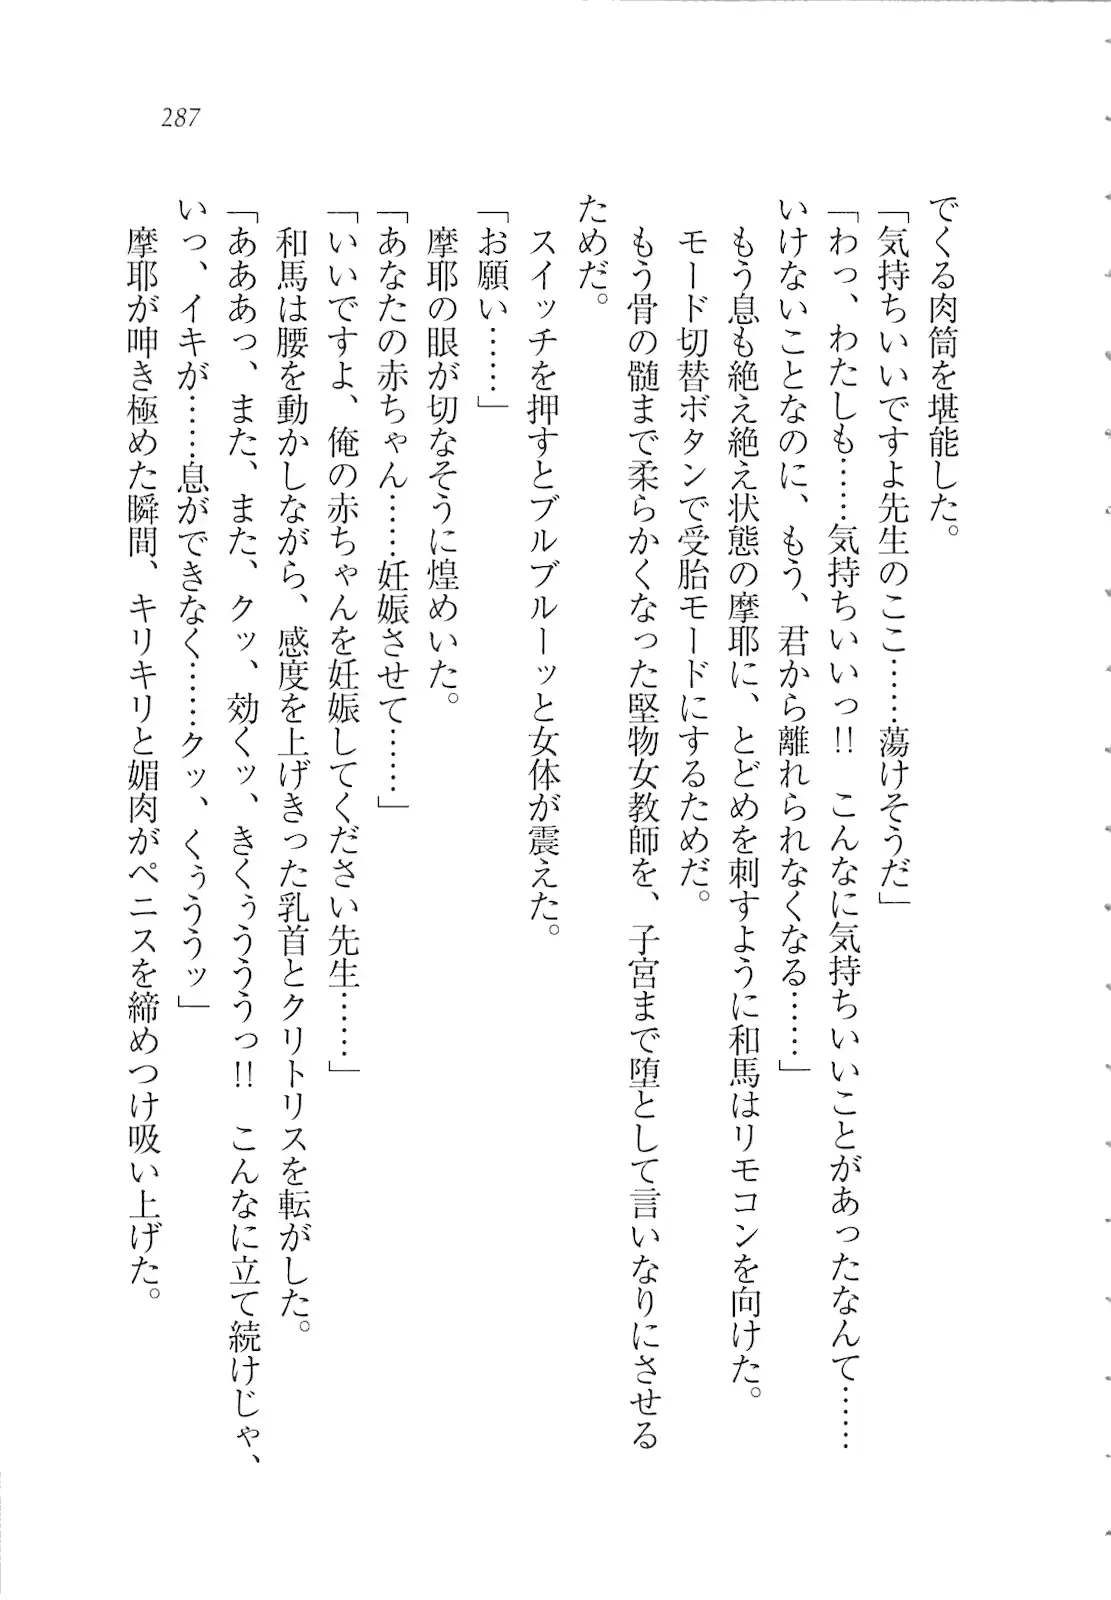 287
でくる肉筒を堪能した。
「気持ちいいですよ先生のここ……蕩けそうだ」
「わっ、わたしも……気持ちいいっ!!　こんなに気持ちいいことがあったなんて……
いけないことなのに、もう、君から離れられなくなる……」
もう息も絶え絶え状態の摩耶に、とどめを刺すように和馬はリモコンを向けた。
モード切替ボタンで受胎モードにするためだ。
もう骨の髄まで柔らかくなった堅物女教師を、子宮まで堕として言いなりにさせる
ためだ。
スイッチを押すとブルブルーッと女体が震えた。
「お願い……」
摩耶の眼が切なそうに煌めいた。
「あなたの赤ちゃん……妊娠させて……」
「いいですよ、俺の赤ちゃんを妊娠してください先生……」
和馬は腰を動かしながら、感度を上げきった乳首とクリトリスを転がした。
「あああっ、また、また、クッ、効くッ、きくぅううう っ!!　こんなに立て続けじゃ、
いっ、イキが……息ができなく……クッ、くぅううッ」
摩耶が呻き極めた瞬間、キリキリと媚肉がペニスを締めつけ吸い上げた。